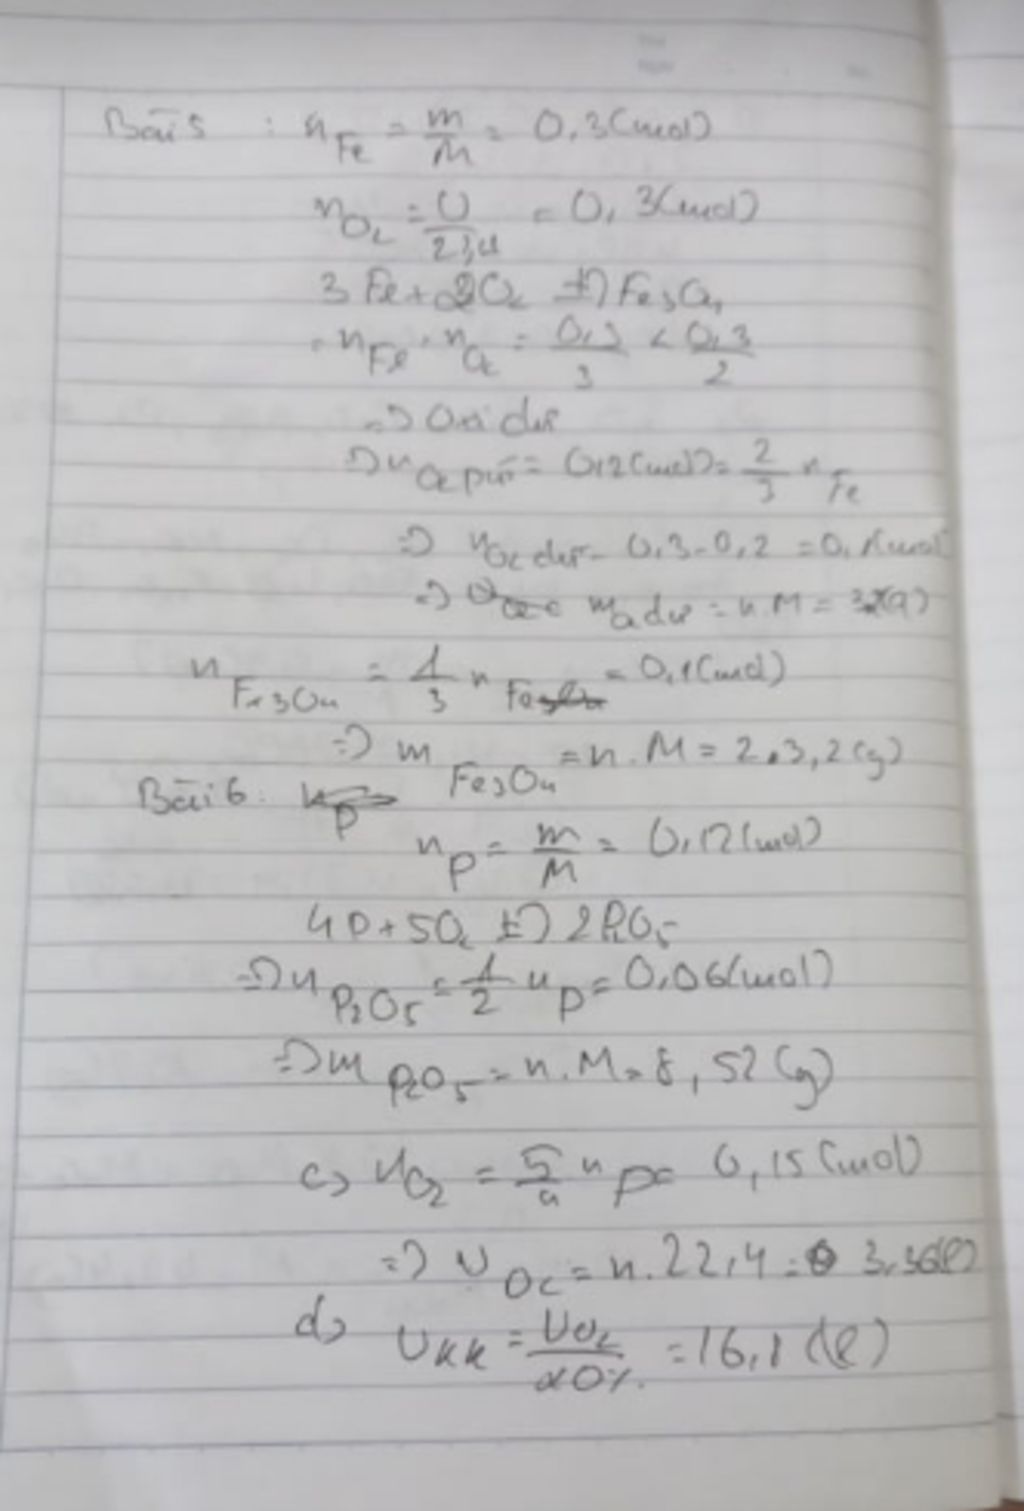 Bài 5 : nFe = m/M = 0,3(mol)
nO2 = V/22,4 = 0,3(mol)
3Fe + 2O2 t°→ Fe3O4
nFe . nO2 = 0,3/3 < 0,3/2
=> Oxi dư
=> nO2 pứ = 0,2(mol) = 2/3 nFe
=> nO2 dư = 0,3-0,2 = 0,1(mol)
=> mO2 dư = n.M = 3,2(g)
nFe3O4 = 1/3 nFe = 0,1(mol)
=> mFe3O4 = n.M = 23,2(g)
Bài 6:
nP = m/M = 0,12(mol)
4P + 5O2 t°→ 2P2O5
=> nP2O5 = 1/2 nP = 0,06(mol)
=> mP2O5 = n.M = 8,52(g)
c) nO2 = 5/4 nP = 0,15(mol)
=> VO2 = n.22,4 = 3,36(l)
d) VKK = VO2/20% = 16,1(l)